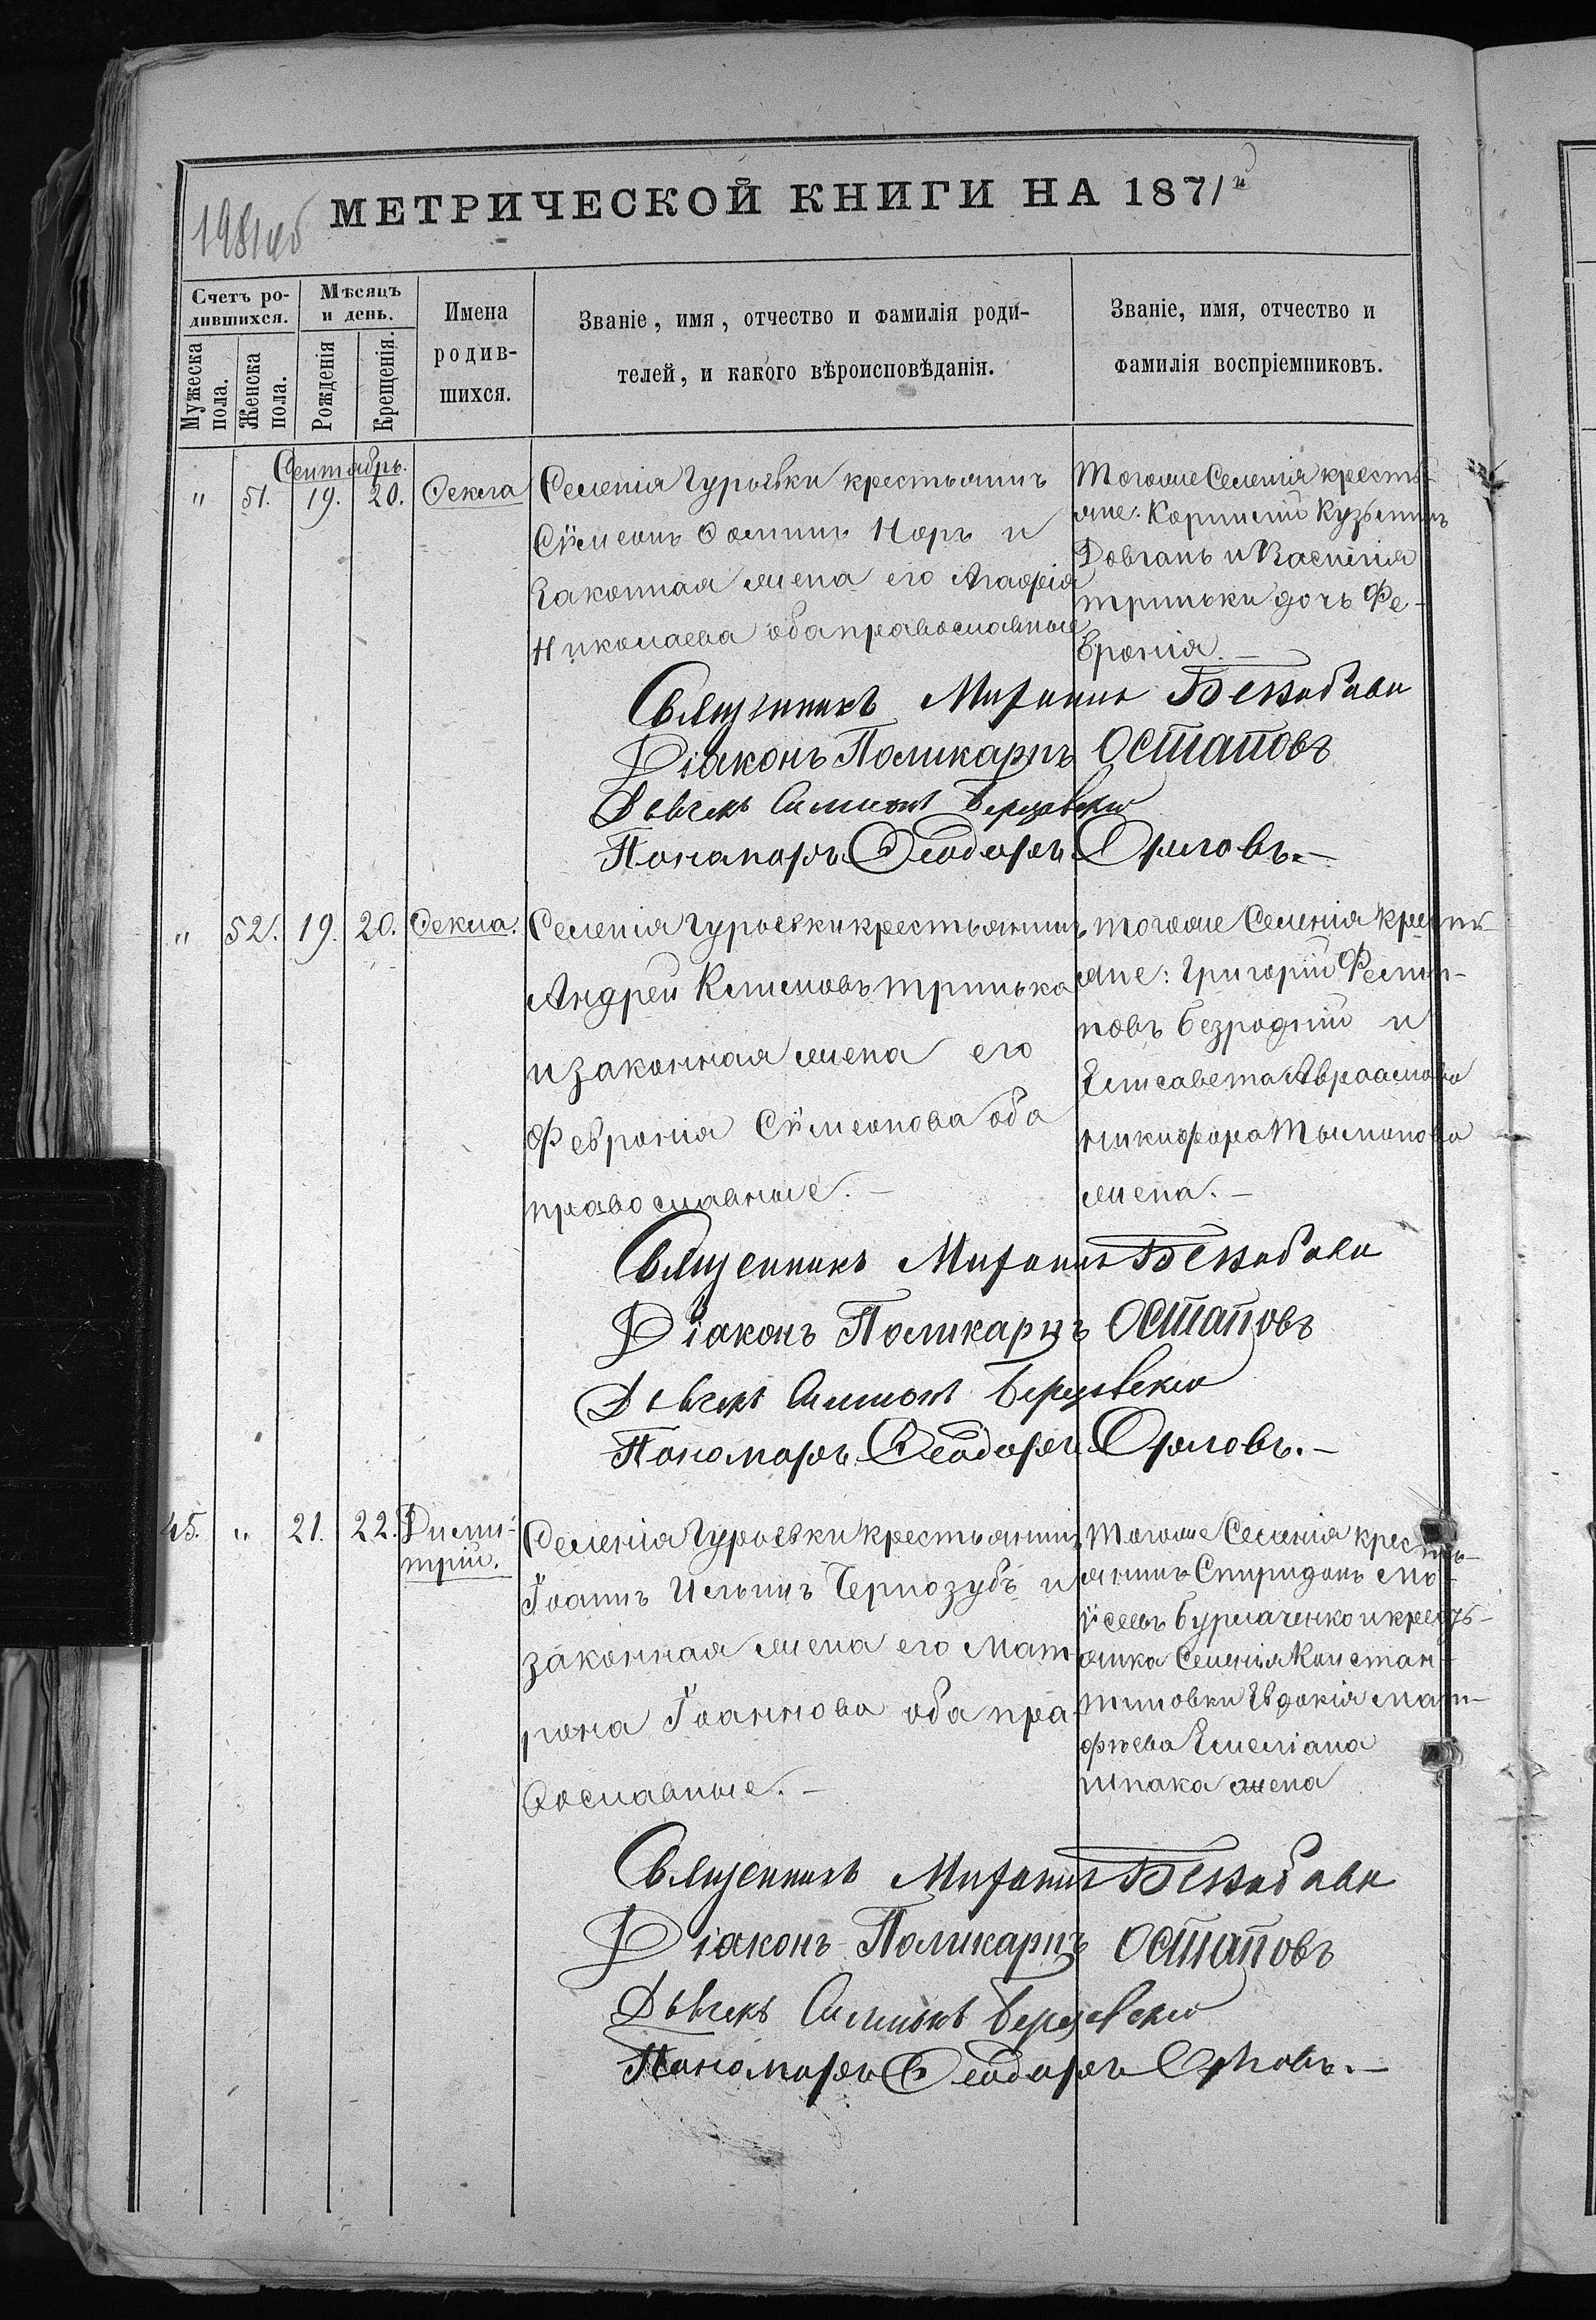 МЕТРИЧЕСКОЙ КНИГИ НА 1871й
198об
Счетъ ро-
дившихся.
Мужеска пола.
Женска пола.
Мѣсяцъ
и день.
Рожденія
Крещенія.
Имена
родив-
шихся.
Званіе, имя, отчество и фамилія роди-
телей, и какого вѣроисповѣданія.
Званіе, имя, отчество и
фамилія воспріемниковъ.
Сентябрь.
" 51. 19. 20. Ѳекла
Селенія Гурьевки крестьянинъ
Сѵмеонъ Ѳоминъ Норъ и
законная жена его Агафія
Николаева оба православные
Тогоже Селенія кресть-
яне: Корнилій Кузьминъ
Довгань и Василія
Гриньки дочь Фе-
вронія.—
Священникъ Митрофанъ
Діаконъ Поликарпъ Остаповъ
Дьячекъ Симеонъ Березовскій
Пономарь Ѳеодоръ Орловъ.—
" 52. 19. 20. Ѳекла.
Селенія Гурьевки крестьянинъ
Андрей Климовъ Гринько
и законная жена его
Февронія Сѵмеонова оба
православные.—
тогоже Селенія кресть-
яне: Григорій Филип-
повъ Безродній и
Елисавета Авраамова
Никифора
жена.—
Священникъ Митрофанъ
Діаконъ Поликарпъ Остаповъ
Дьячекъ Симеонъ Березовскій
Пономарь Ѳеодоръ Орловъ.—
45. " 21. 22. Дими-
трій.
Селенія Гурьевки крестьянинъ
Іоаннъ Ильинъ Чернозубъ и
законная жена его Мат-
рона Іоаннова оба пра-
вославные.—
Тогоже Селенія кресть-
янинъ Спиридонъ Мо-
ѵсеевъ Бурлаченко и кресть-
янка Селенія Констан-
тиновки Евдокія Мат-
фѣева Емеліана
Шпака жена
Священникъ Митрофанъ
Діаконъ Поликарпъ Остаповъ
Дьячекъ Симеонъ Березовскій
Пономарь Ѳеодоръ Орловъ.—